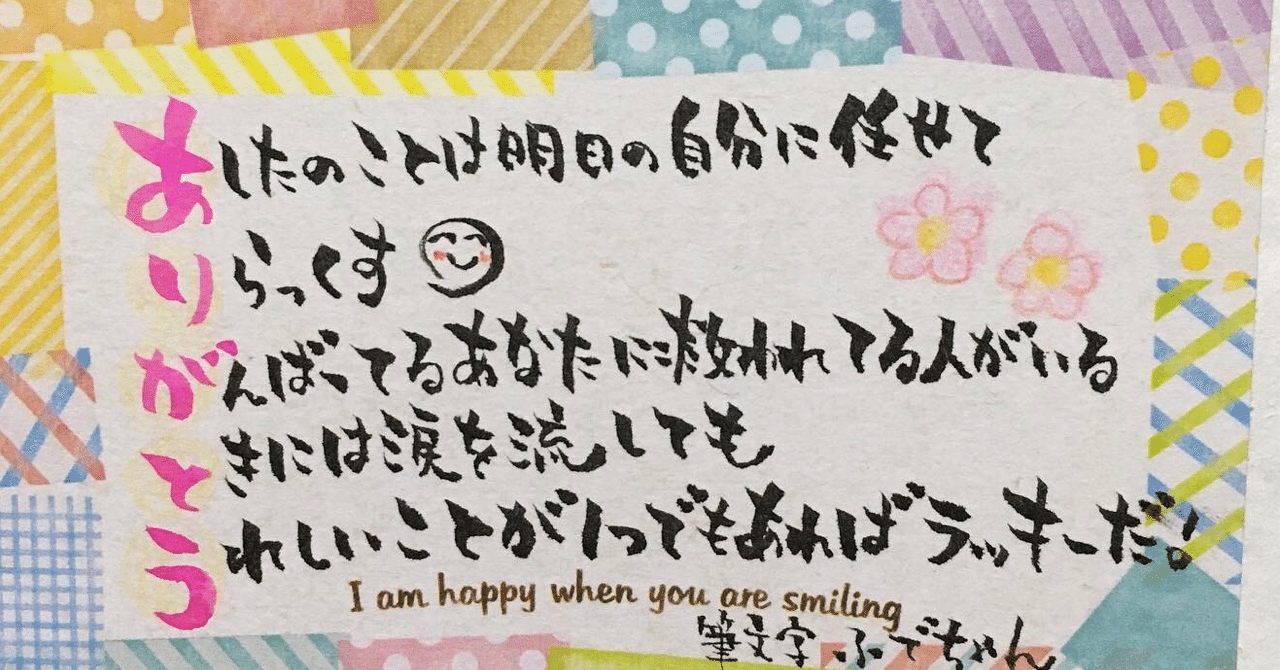 あしたのことは明日の自分に任せて
りらっくす
がんばってるあなたに救われてる人がいる
ときには涙を流しても
うれしいことが1つでもあればラッキーだ!
I am happy when you are smiling
筆文字 ふでちゃん